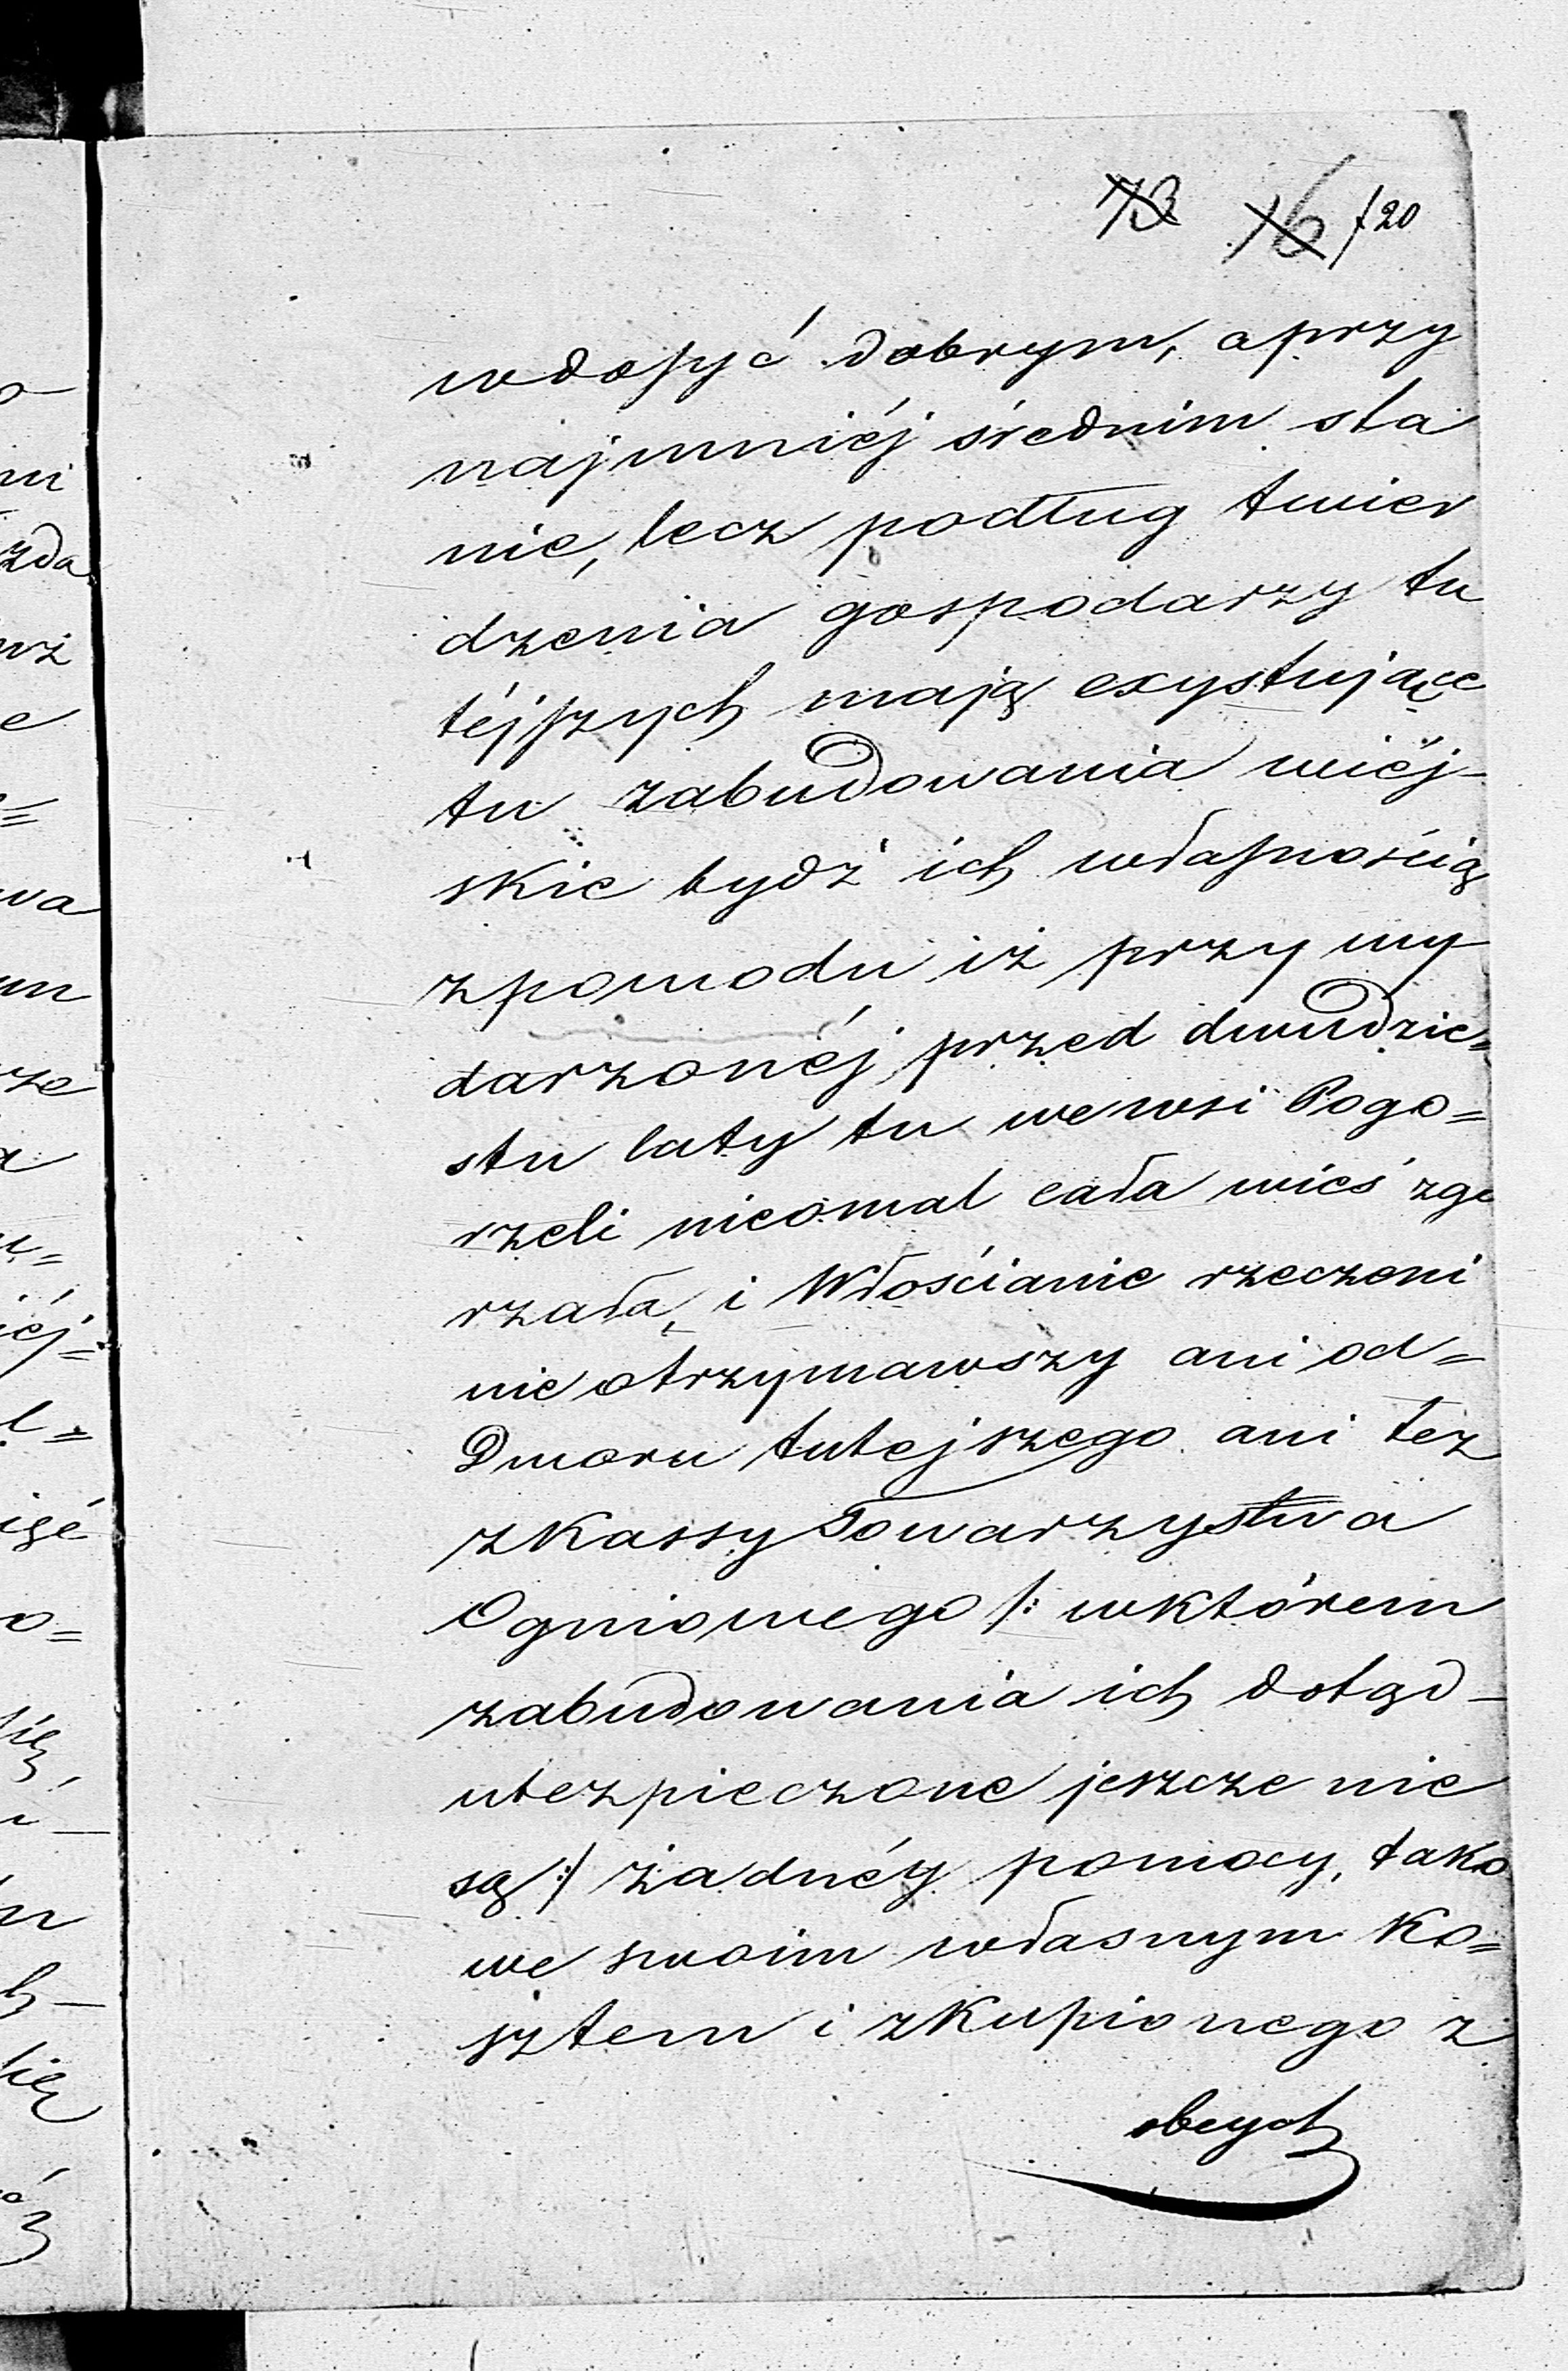 73 16 120
wdosyć dobrym, a przy
najmniéj średnim sta
nie, lecz podług twier
dzenia gospodarzy tu
téjszych mają exystujące
tu zabudowania wiéj-
skie bydź ich własnością
z powodu iż przy wy
darzonéj przed dwudzie=
stu laty tu we wsi Pogo=
rzeli nieomal cała wieś zgo
rzała, i Włościanie rzeczeni
nie otrzymawszy ani od=
Dworu tutejszego ani też
z Kassy Towarzystwa
Ogniowego /: w którem
zabudowania ich dotąd-
ubezpieczone jeszcze nie
są :/ żadnéy pomocy, tako
we swoim własnym Ko=
sztem i z Kupionego z
obcych